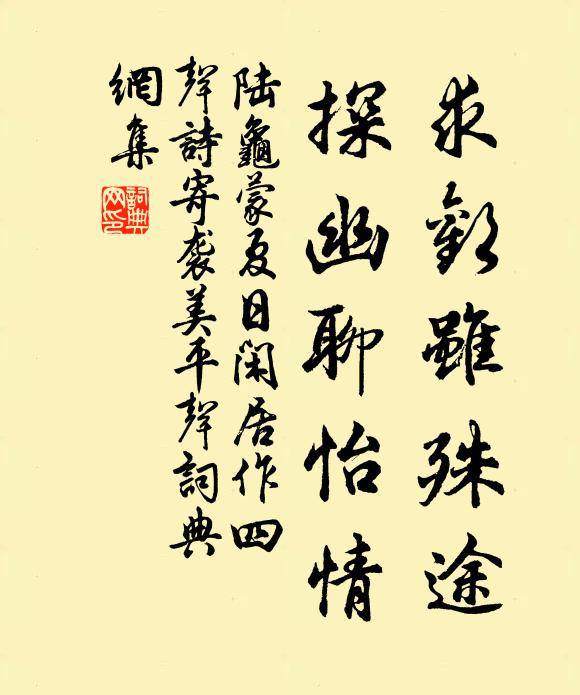 求歡雖殊途
探幽聊怡情
陆龜蒙夏日閑居作四
聲詩寄袭美平聲詞典
網集
詞典网印